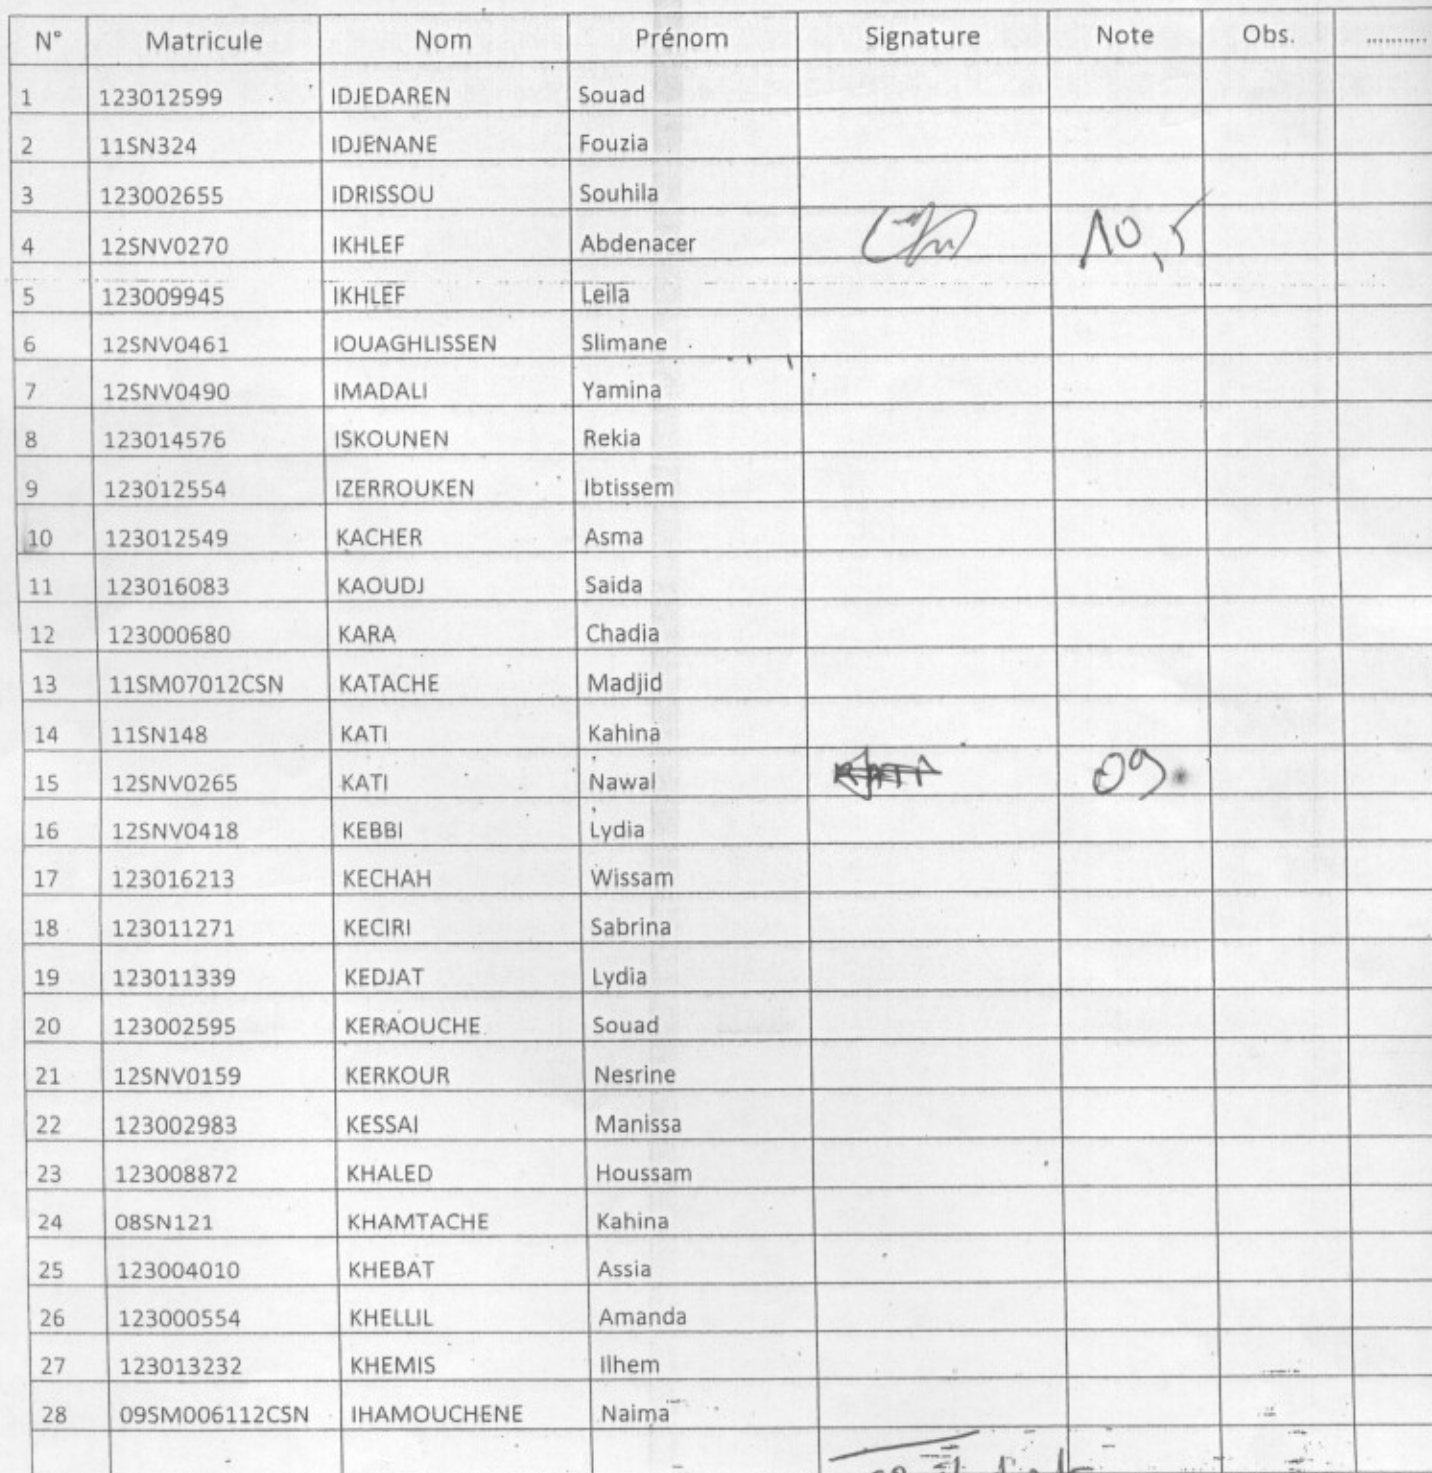 N° Matricule Nom Prénom Signature Note Obs. ...........
1 123012599 IDJEDAREN Souad
2 11SN324 IDJENANE Fouzia
3 123002655 IDRISSOU Souhila
4 12SNV0270 IKHLEF Abdenacer 10,5
5 123009945 IKHLEF Leila
6 12SNV0461 IOUAGHLISSEN Slimane
7 12SNV0490 IMADALI Yamina
8 123014576 ISKOUNEN Rekia
9 123012554 IZERROUKEN Ibtissem
10 123012549 KACHER Asma
11 123016083 KAOUDJ Saida
12 123000680 KARA Chadia
13 11SM07012CSN KATACHE Madjid
14 11SN148 KATI Kahina
15 12SNV0265 KATI Nawal 09
16 12SNV0418 KEBBI Lydia
17 123016213 KECHAH Wissam
18 123011271 KECIRI Sabrina
19 123011339 KEDJAT Lydia
20 123002595 KERAOUCHE Souad
21 12SNV0159 KERKOUR Nesrine
22 123002983 KESSAI Manissa
23 123008872 KHALED Houssam
24 08SN121 KHAMTACHE Kahina
25 123004010 KHEBAT Assia
26 123000554 KHELLIL Amanda
27 123013232 KHEMIS Ilhem
28 09SM006112CSN IHAMOUCHENE Naima